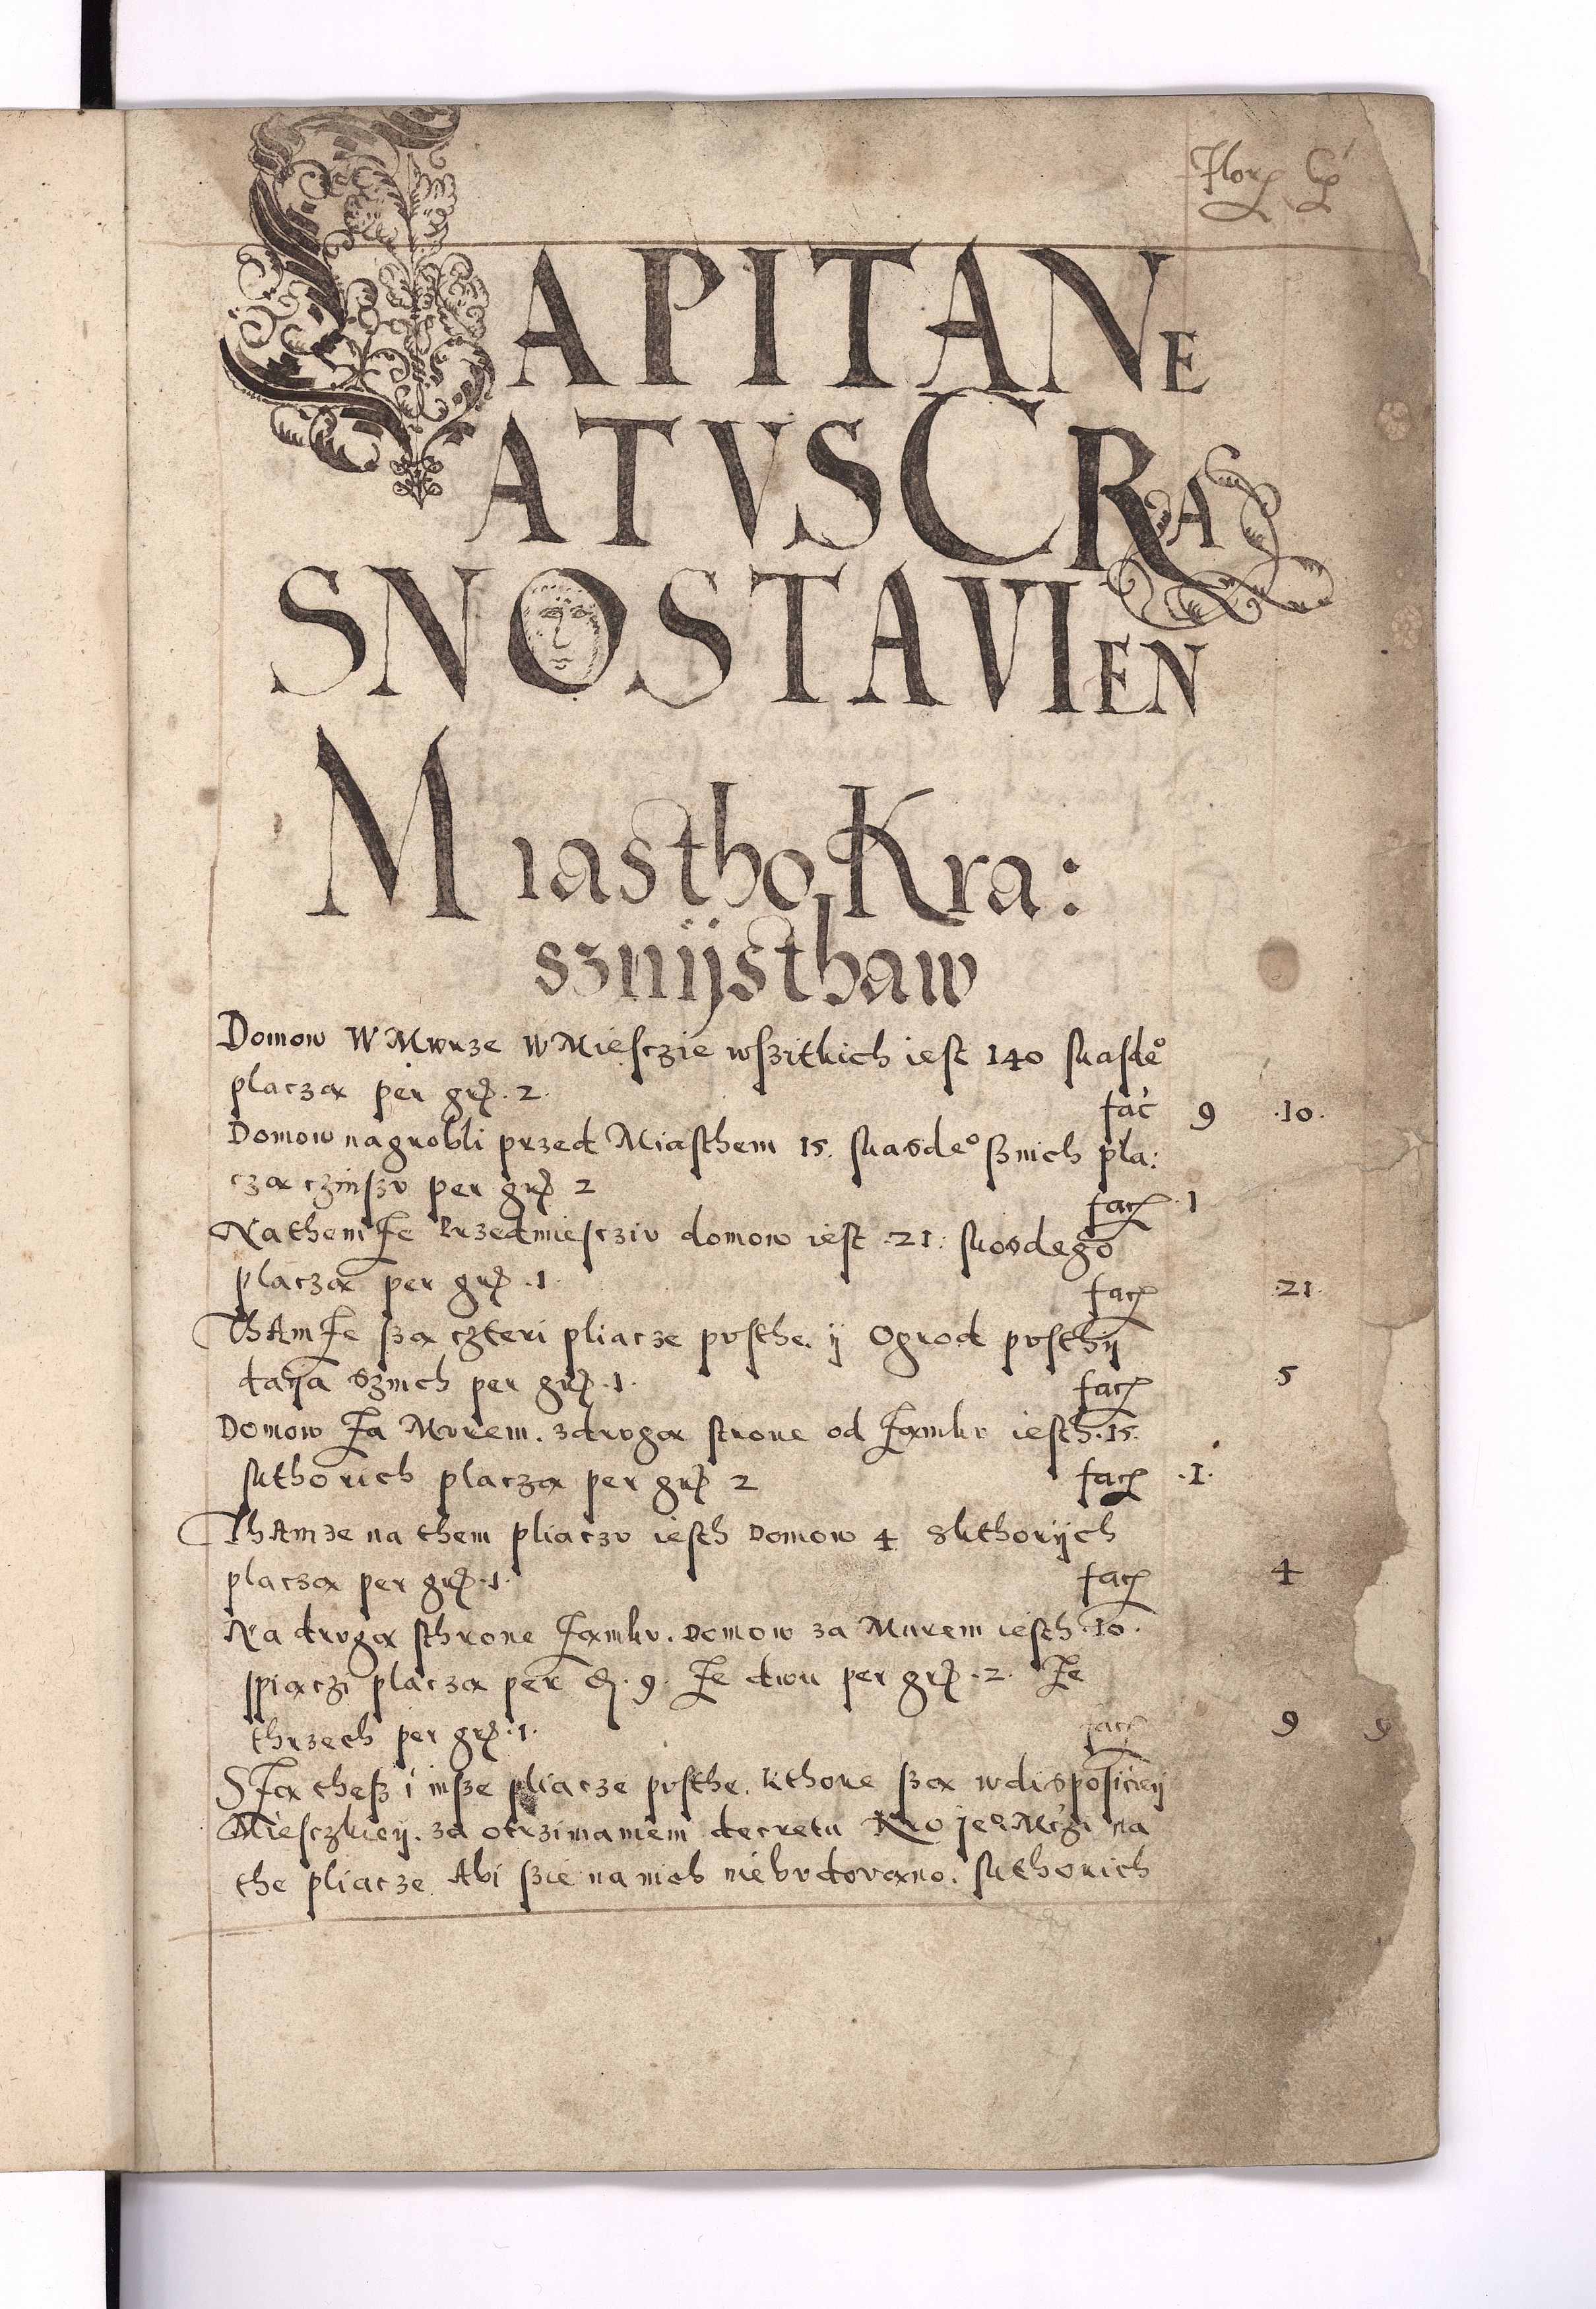 Flor Gr
CAPITANE
ATVS CRA
SNOSTAVIEN
Miastho Kra:
sznijsthaw
Domow W Mwrze W Miesczie wszitkich iest 140 skasde°
placza per gr. 2. fac 9 .10.
Domow na grobli przed Miasthem 15. skasde° sznich pla:
cza czinszv per gr 2 fac .1
Na themze Przedmiescziv domow iest .21. skosdego
placza per gr .1. fac 21.
Thamze sza czteri pliacze pvsthe. ij Ogrod pvsthij
daija sznich per gr .1. fac 5
Domow za Mvrem. z drvga strone od zamkv iesth .15.
skthorich placza per gr 2 fac .1.
Thamze na them pliaczv iesth Domow 4 skthorijch
placza per gr .1. fac 4
Na drvga sthrone zamkv. Domow za Murem iesth .10.
spiaczi placza per d. 9. ze dwu per gr .2. ze
thrzech per gr .1. fac 9 9
Sza thesz i insze pliacze pvsthe. kthore sza w disposiciey
Miesczkieij. za otrzimaniem decretu Kro je° Mczi na
the pliacze Abi szie na nich nie bvdowano. skthorich